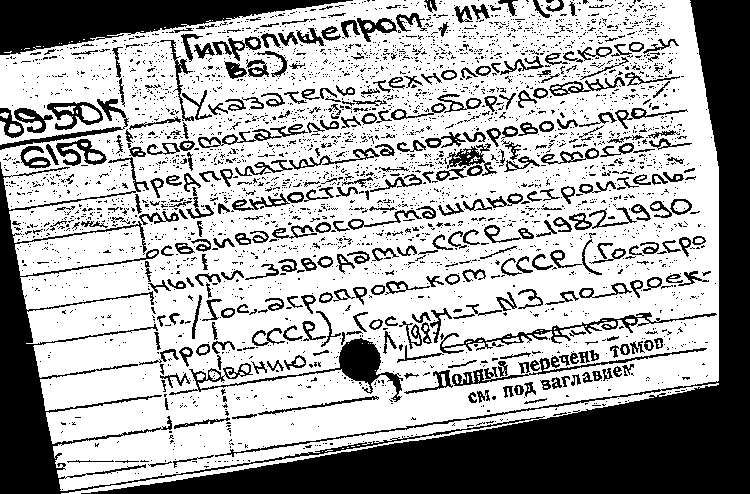 "Гипропищепром", ин-т (З,
ва)
89-50К
6158
Указатель технологического и
вспомогательного оборудования
предприятий масложировой про-
мышленности, изготовляемого и
осваиваемого машиностроитель-
ными заводами СССР в 1987-1990
гг. / Гос. агропром. ком. СССР (Госагро
пром СССР), Гос. ин-т N3 по проек-
тированию...
Л., 1987.
См. след. карт.
Полный перечень томов
см. под заглавием